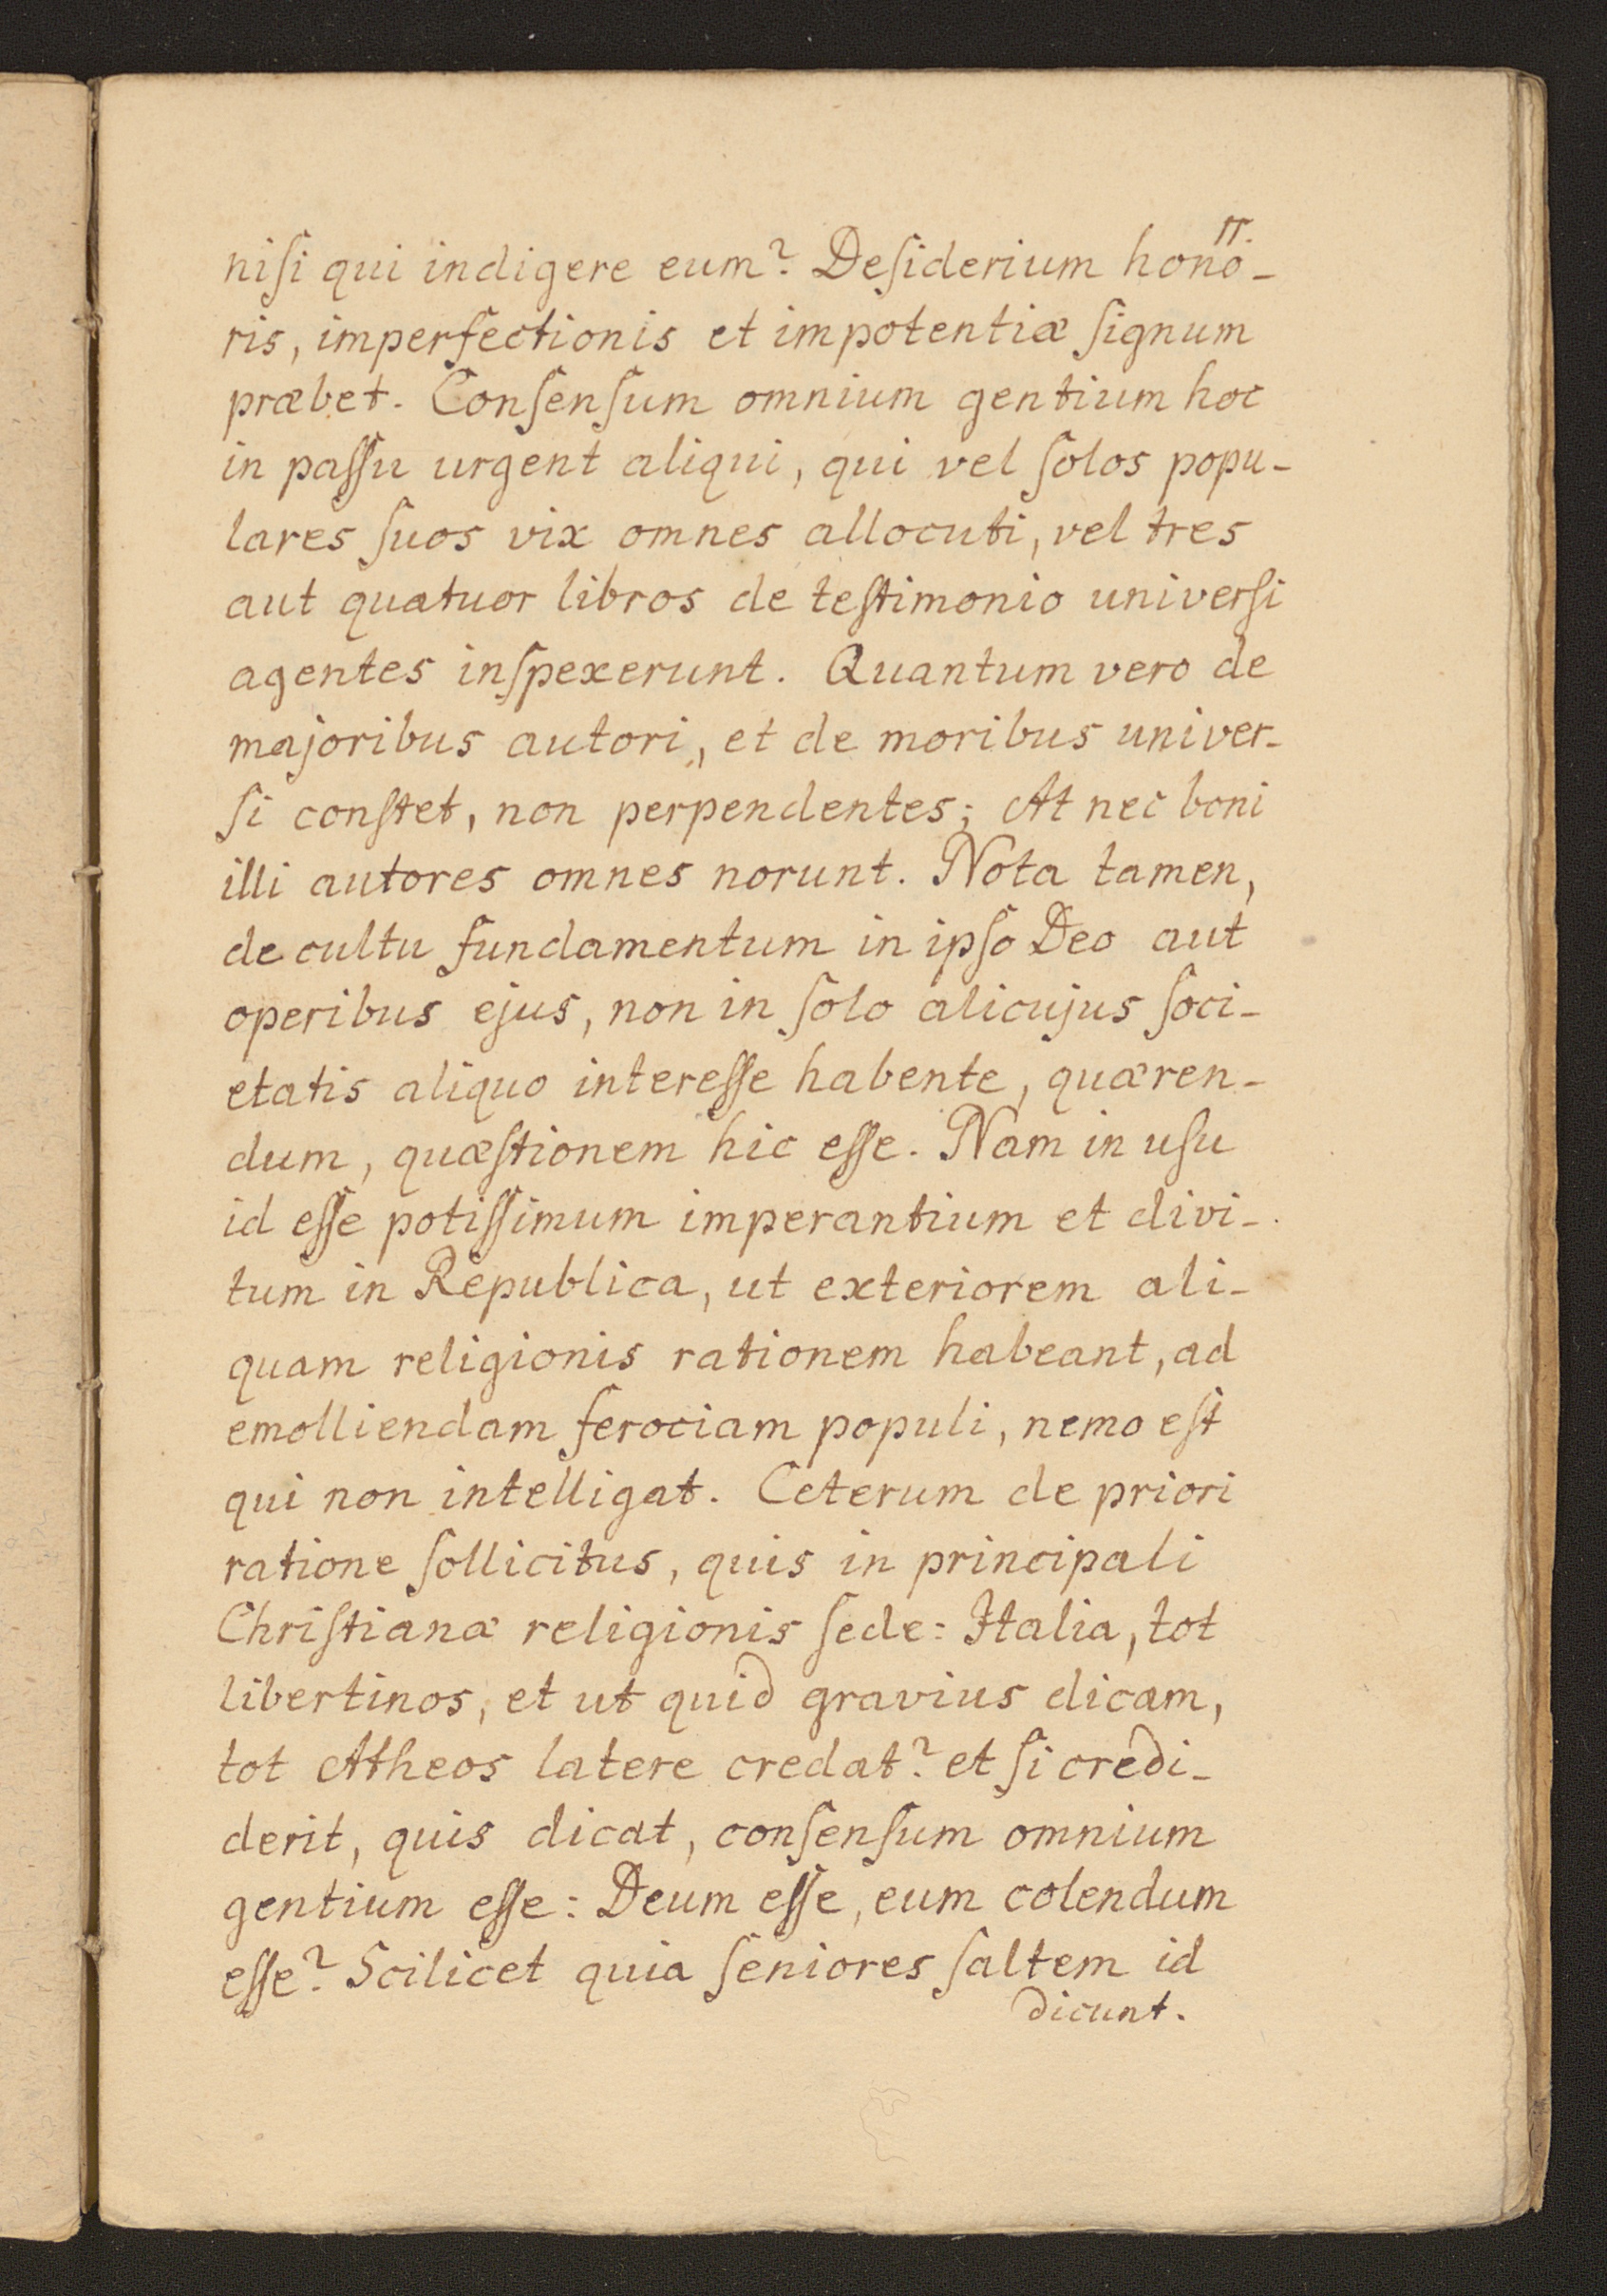 11.
niſi qui indigere eum? Deſiderium hono-
ris, imperfectionis et impotentiæ ſignum
præbet. Conſenſum omnium gentium hoc
in paſſu urgent aliqui, qui vel ſolos popu-
lares ſuos vix omnes allocuti, vel tres
aut quatuor libros de teſtimonio univerſi
agentes inſpexerunt. Quantum vero de
majoribus autori, et de moribus univer-
ſi conſtet, non perpendentes; At nec boni
illi autores omnes norunt. Nota tamen,
de cultu fundamentum in ipſo Deo aut
operibus ejus, non in ſolo alicujus ſoci-
etatis aliquo intereſſe habente, quæren-
dum, quæſtionem hic eſſe. Nam in uſu
id eſſe potiſſimum imperantium et divi-
tum in Republica, ut exteriorem ali-
quam religionis rationem habeant, ad
emolliendam ferociam populi, nemo eſt
qui non intelligat. Ceterum de priori
ratione ſollicitus, quis in principali
Chriſtianæ religionis ſede: Italia, tot
libertinos, et ut quid gravius dicam,
tot Atheos latere credat? et ſi credi-
derit, quis dicat, conſenſum omnium
gentium eſſe: Deum eſſe, eum colendum
eſſe? Scilicet quia ſeniores ſaltem id
dicunt.